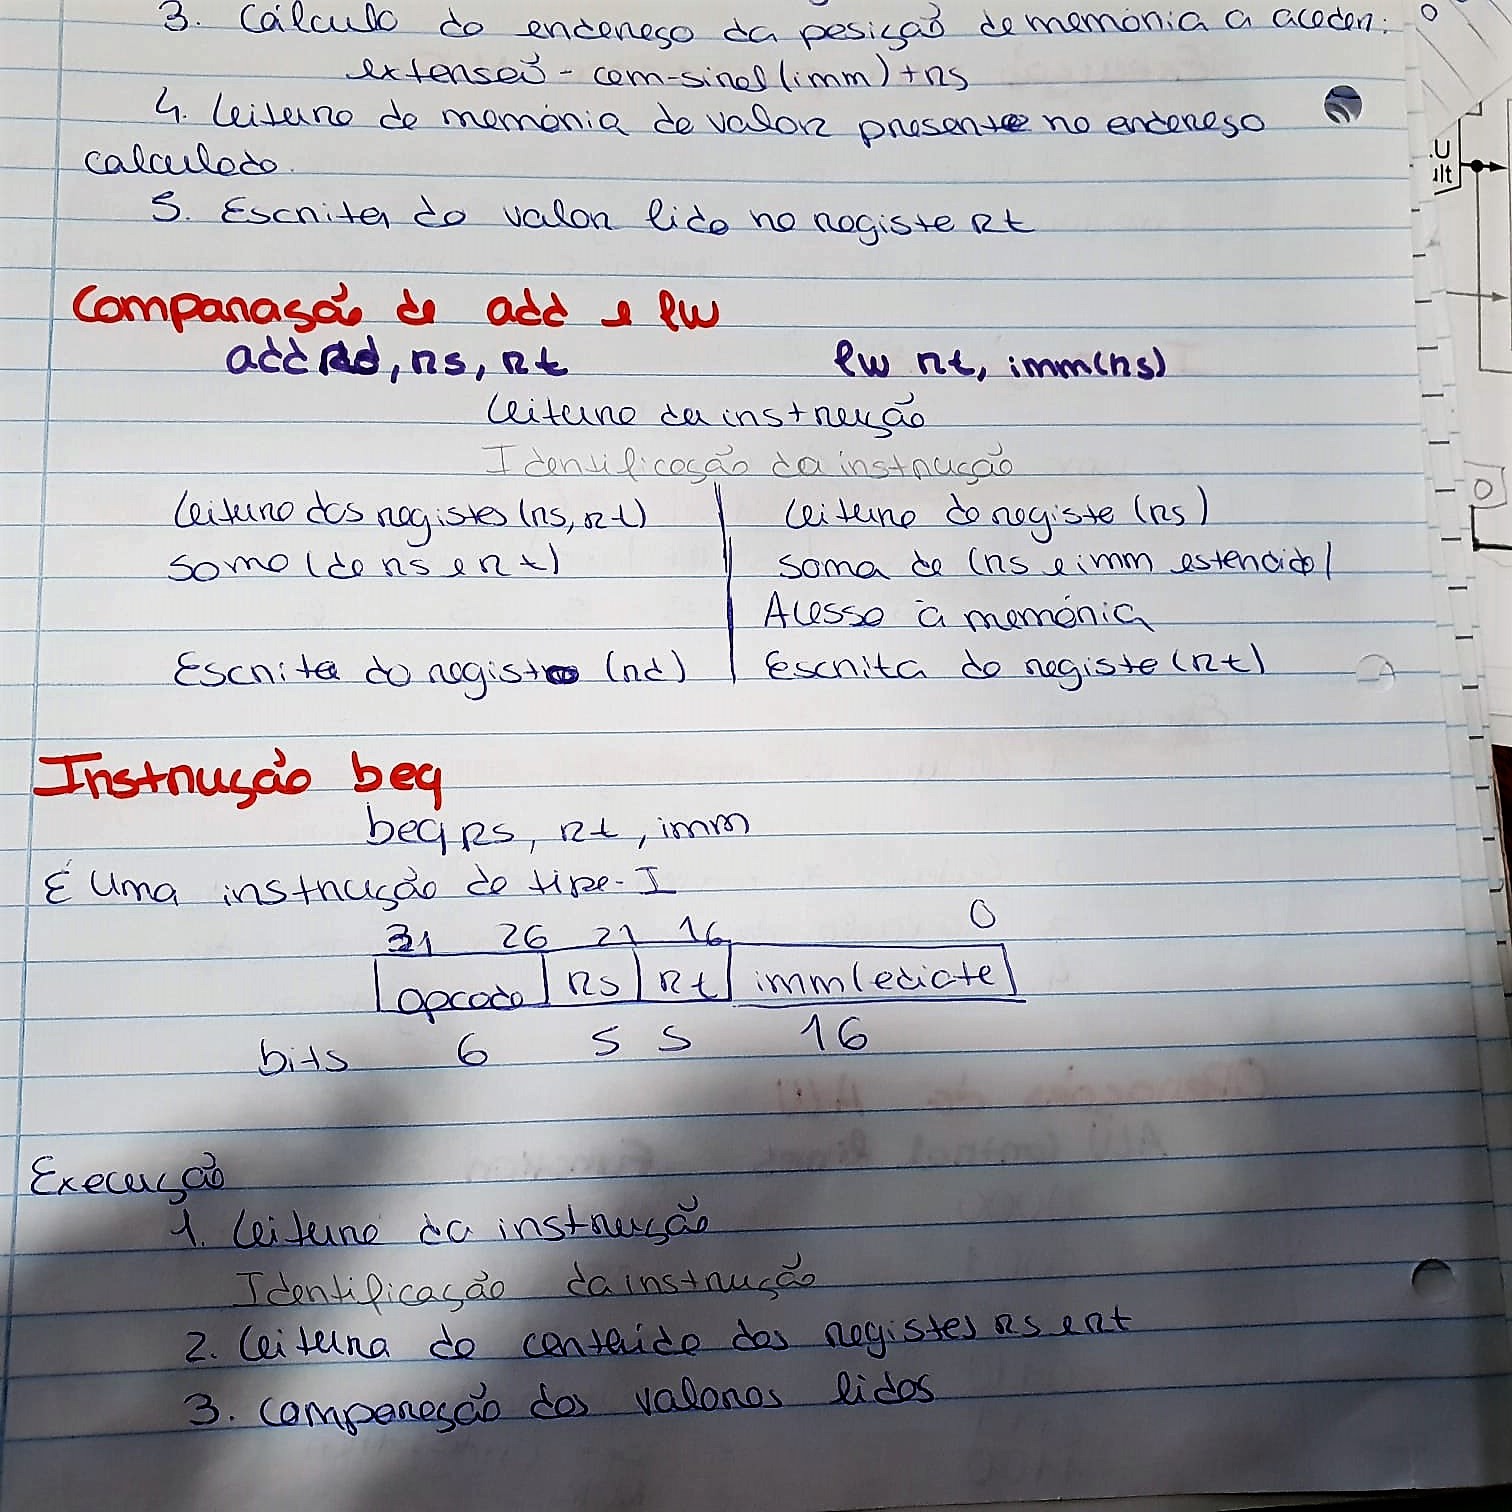 3. Cálculo do endereço da posição de memória a aceder:
extensão-com-sinal(imm)+rs
4. Leitura de memória do valor presente no endereço
calculado.
5. Escrita do valor lido no registo rt
Comparação de add e lw
add rd, rs, rt lw rt, imm(rs)
Leitura da instrução
Identificação da instrução
Leitura dos registos (rs, rt) Leitura do registo (rs)
Soma (de rs e rt) Soma de (rs e imm estendido)
Acesso à memória
Escrita do registo (rd) Escrita do registo (rt)
Instrução beq
beq rs, rt, imm
É uma instrução de tipo-I
31 26 21 16 0
opcode rs rt imm(ediate)
bits 6 5 5 16
Execução
1. Leitura da instrução
Identificação da instrução
2. Leitura do conteúdo dos registos rs e rt
3. Comparação dos valores lidos